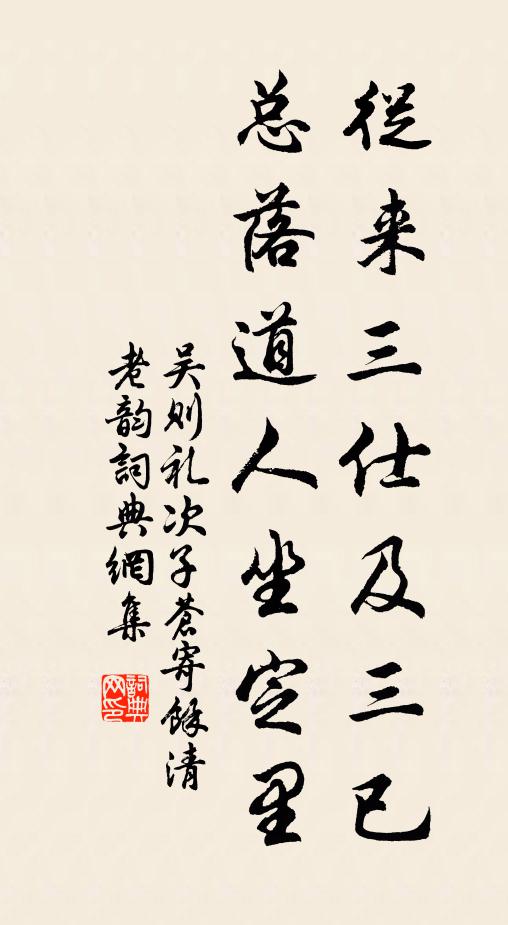 從来三仕及三已
总落道人坐定里
吴则礼次子蒼寄餘清
老韵詞典網集
詞典网印